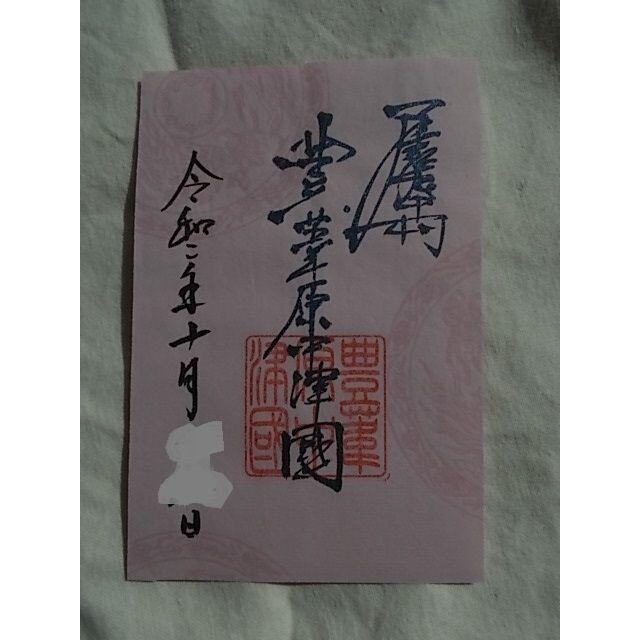 豊葦原中津國
令和二年十月
日
豊葦
原中
津國